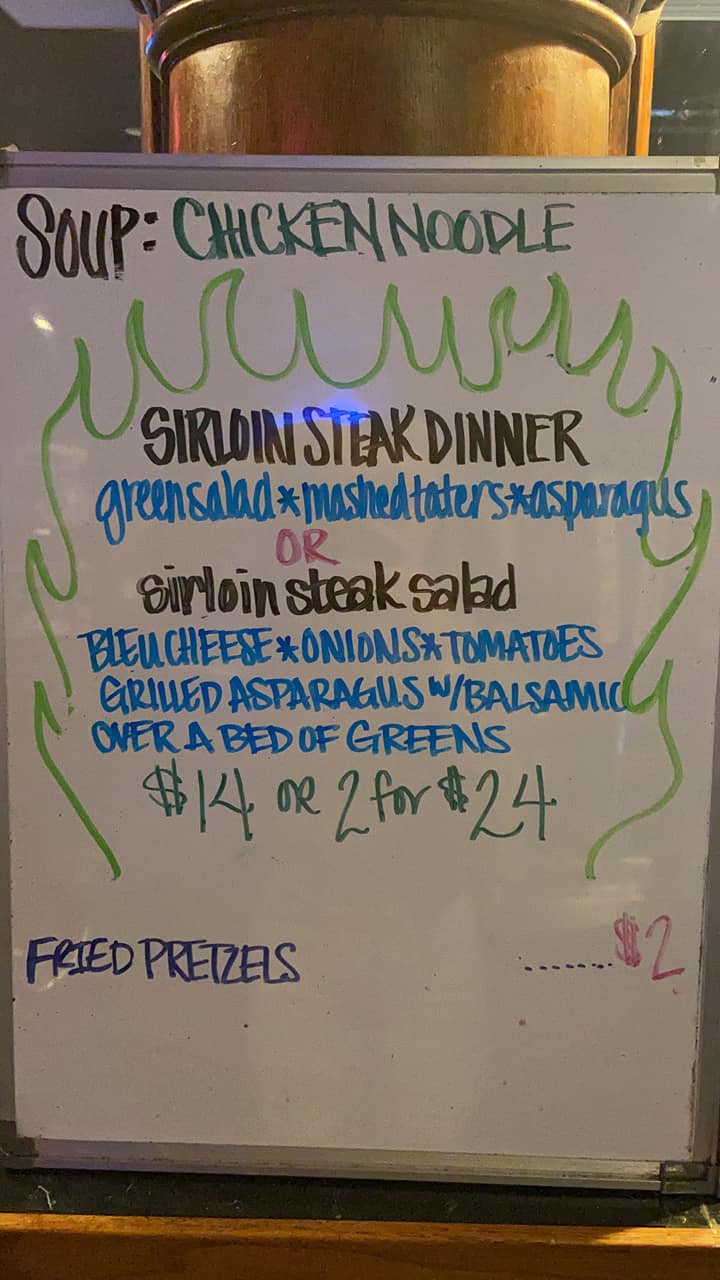 SOUP: CHICKEN NOODLE
SIRLOIN STEAK DINNER
green salad*mashed taters*asparagus
OR
sirloin steak salad
BLEU CHEESE*ONIONS*TOMATOES
GRILLED ASPARAGUS W/BALSAMIC
OVER A BED OF GREENS
$14 or 2 for $24
FRIED PRETZELS ........$2